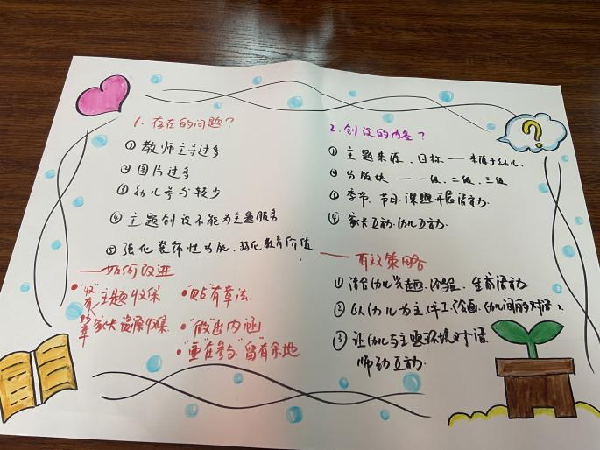 1. 存在的问题?
① 教师主导过多
② 图片过多
③ 幼儿参与较少
④ 主题创设不能为主题服务
⑤ 强化装饰性功能、弱化教育价值
——如何改进
主题收集
家长资源收集
• "贴"有章法
• "做"出内涵
• "重"在参与 "留"有余地
2. 创设的内容?
① 主题来源、目标——来源于幼儿
② 分版块——一级、二级、三级
③ 季节、节日、课题开展活动
④ 家长互动、幼儿互动
——有效策略
① 结合幼儿兴趣、经验、生成活动
② 以幼儿为主体
③ 让幼儿与主题环境对话
师幼互动
?